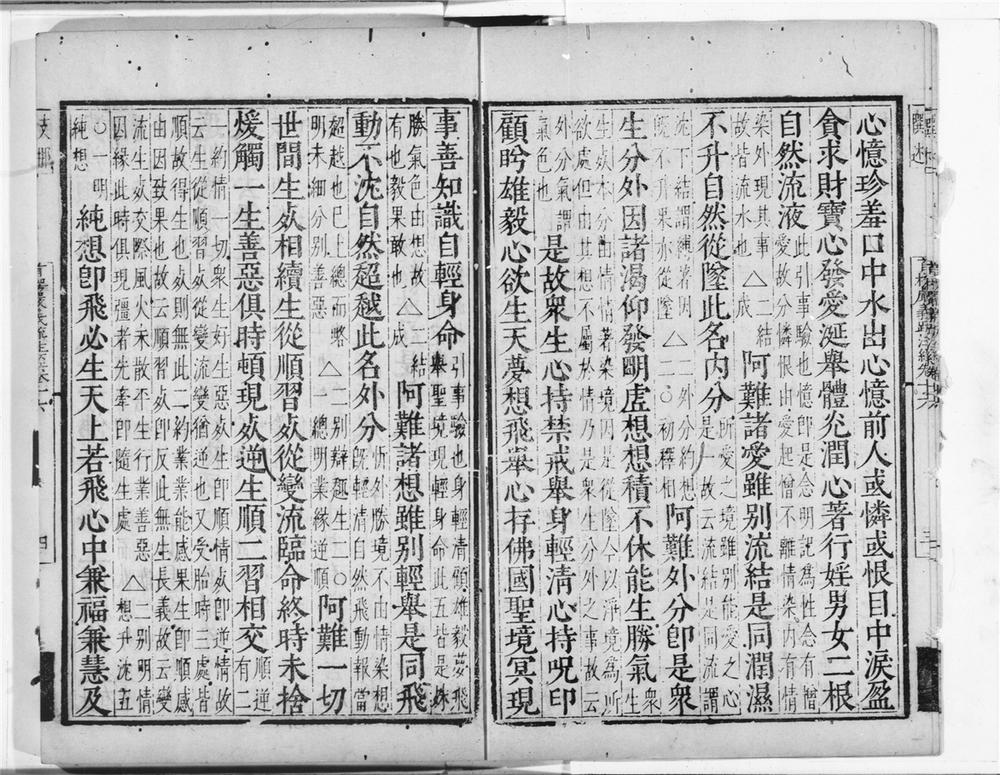 心憶珍羞口中水出心憶前人或憐或恨目中淚盈
貪求財寶心發愛涎舉體光潤心著行婬男女二根
自然流液此引事驗也憶即是念明記為性念有憎愛故分憐恨由愛起憎不離情染內有情
染外現其事故皆流水也△二結成阿難諸愛雖別流結是同潤濕
不升自然從墜此名內分所愛之境雖別能愛之心是一故云流結是同流謂
沈下結謂縛著因既不升果亦從也△二外分約想二○初釋相阿難外分即是衆
生分外因諸渴仰發明虛想想積不休能生勝氣衆生
本分由情情著染境因是從墜今以淨境為所欲處但由其想不屬於情乃是衆生分外之事故云
外分氣色也是故衆生心持禁戒舉身輕清心持呪印
顧眄雄毅心欲生天夢想飛舉心存佛國聖境冥現
事善知識自輕身命引事驗也身輕清顧雄毅夢飛舉聖境現輕身命此五皆是殊
勝氣色由想故有也毅果敢也△二結成阿難諸想雖別輕舉是同飛
動不沈自然超越此名外分忻外勝境不由情染想既輕清自然飛動報當
超越也已上總而略明未細分別善惡△二別辯趣生二○一總明業緣逆順阿難一切
世間生死相續生從順習死從變流臨命終時未捨
煖觸一生善惡俱時頓現死逆生順二習相交順逆有二
一約情一切衆生好生惡死生即順情死即逆情故云生從順習死從變流變猶逆也又受胎時三處皆
順故得生也死則無此二約業業能感果生即順業由因致果也故云順習死即反此無生長義故云變
流生死交際風火未散丕生行業善惡因緣此時俱現彊者先牽即隨生處△二別明情想升沈五
○一明純想純想即飛必生天上若飛心中兼福兼慧及
四